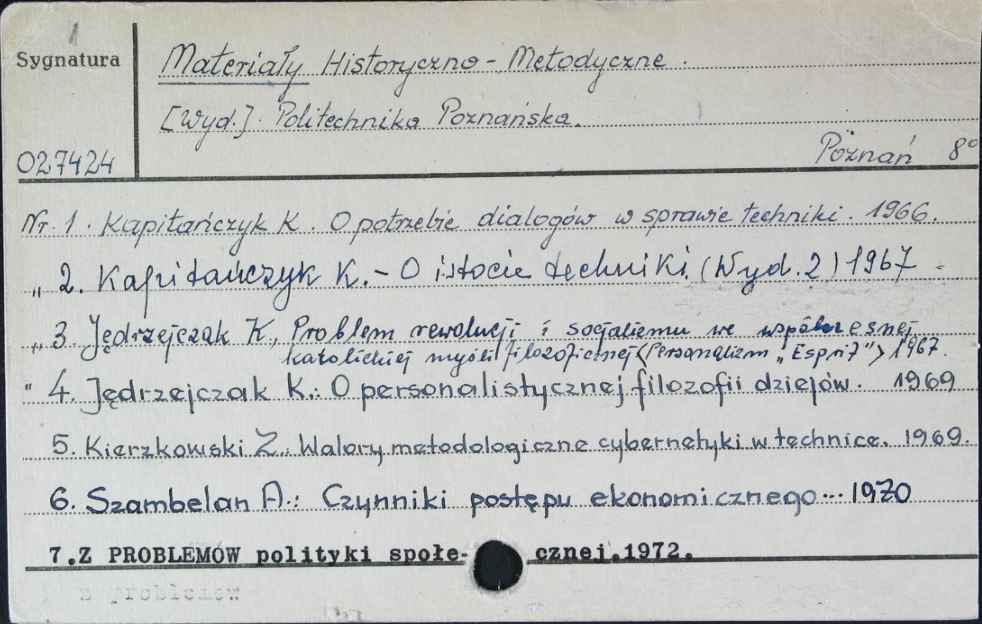 Sygnatura
Materiały Historyczno - Metodyczne.
[Wyd.]. Politechnika Poznańska.
027424
Poznań 8°
Nr. 1. Kapitańczyk K. O potrzebie dialogów w sprawie techniki. 1966.
„ 2. Kapitańczyk K. - O istocie techniki. (Wyd. 2) 1967
„ 3 Jędrzejczak K., Problem rewolucji i socjalizmu we współczesnej
katolickiej myśli filozoficznej (Personalizm „Esprit") 1967.
" 4. Jędrzejczak K.: O personalistycznej filozofii dziejów. 1969
5. Kierzkowski Z.: Walory metodologiczne cybernetyki w technice. 1969.
6. Szambelan A.: Czynniki postępu ekonomicznego... 1970
7.Z PROBLEMÓW polityki społe- cznej.1972.
z problemów